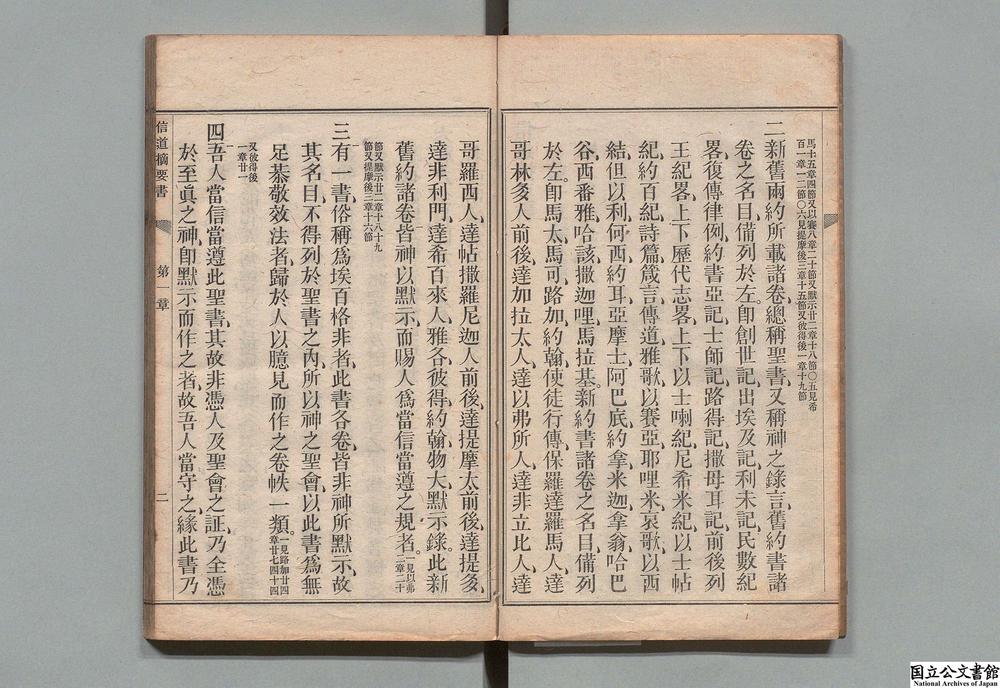 馬十五章四節又以賽八章二十節又默示廿二章十八節〇五見希
百一章一二節〇六見提摩後三章十五節又彼得後一章十九節
二新舊兩約所載諸卷、總稱聖書、又稱神之錄言、舊約書諸
卷之名目、備列於左。卽創世記出埃及記利未記民數紀
畧復傳律例約書亞記士師記路得記撒母耳記前後列
王紀畧上下歷代志畧上下以士喇紀尼希米紀以士帖
紀約百紀詩篇箴言傳道雅歌以賽亞耶哩米哀歌以西
結但以利何西約耳亞摩士阿巴底約拿米迦拿翁哈巴
谷西番雅哈該撒迦哩馬拉基。新約書諸卷之名目、備列
於左。卽馬太馬可路加約翰使徒行傳、保羅達羅馬人、達
哥林多人前後、達加拉太人、達以弗所人、達非立比人、達
哥羅西人、達帖撒羅尼迦人前後、達提摩太前後、達提多、
達非利門、達希百來人、雅各彼得約翰物大默示錄。此新
舊約諸卷、皆神以默示而賜人、爲當信當遵之規者。一見以弗二章二十
節又默示廿二章十八十九
節又提摩後三章十六節
三有一書、俗稱爲埃百格非者、此書各卷、皆非神所默示、故
其名目、不得列於聖書之內、所以神之聖會、以此書爲無
足恭敬效法者、歸於人以臆見而作之卷帙一類。一見路加廿四章廿七四十四
又彼得後
一章廿一
四吾人當信當遵此聖書、其故非憑人及聖會之証、乃全憑
於至眞之神、卽默示而作之者、故吾人當守之、緣此書乃
信道摘要書
第一章
二
国立公文書館
National Archives of Japan